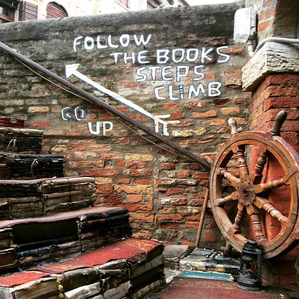 FOLLOW
THE BOOKS
STEPS
CLIMB
GO
UP